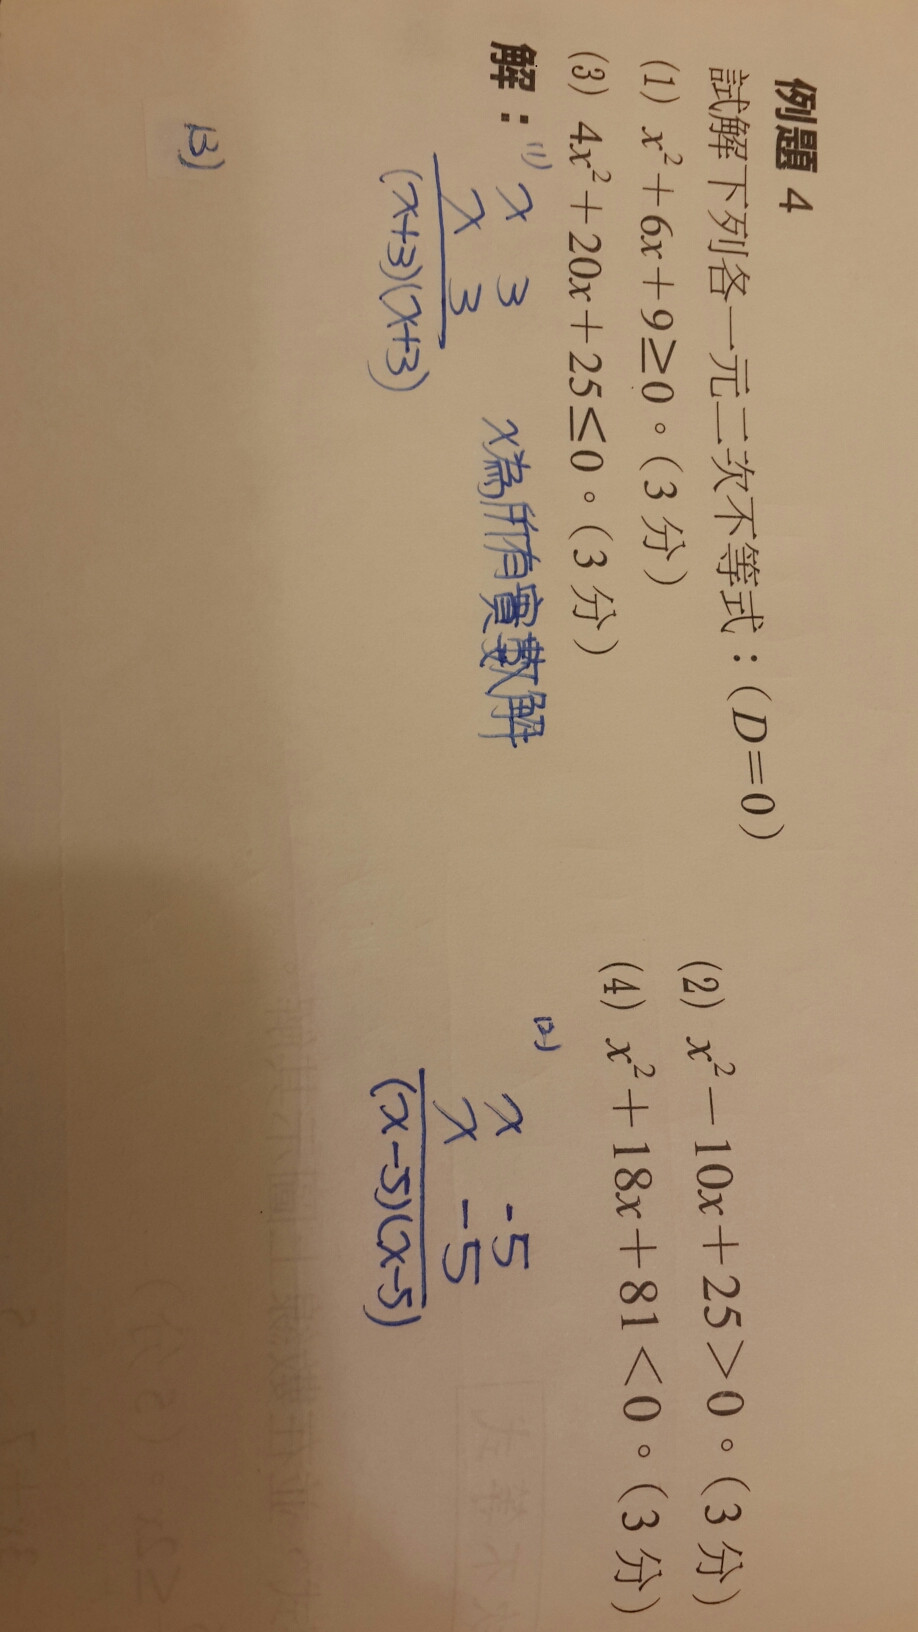 例題 4
試解下列各一元二次不等式：(D=0)
(1) x²+6x+9≥0。(3 分)
(2) x²−10x+25>0。(3 分)
(3) 4x²+20x+25≤0。(3 分)
(4) x²+18x+81<0。(3 分)
解：
(1) x 3
x 3
(x+3)(x+3)
x為所有實數解
(2) x -5
x -5
(x-5)(x-5)
(3)